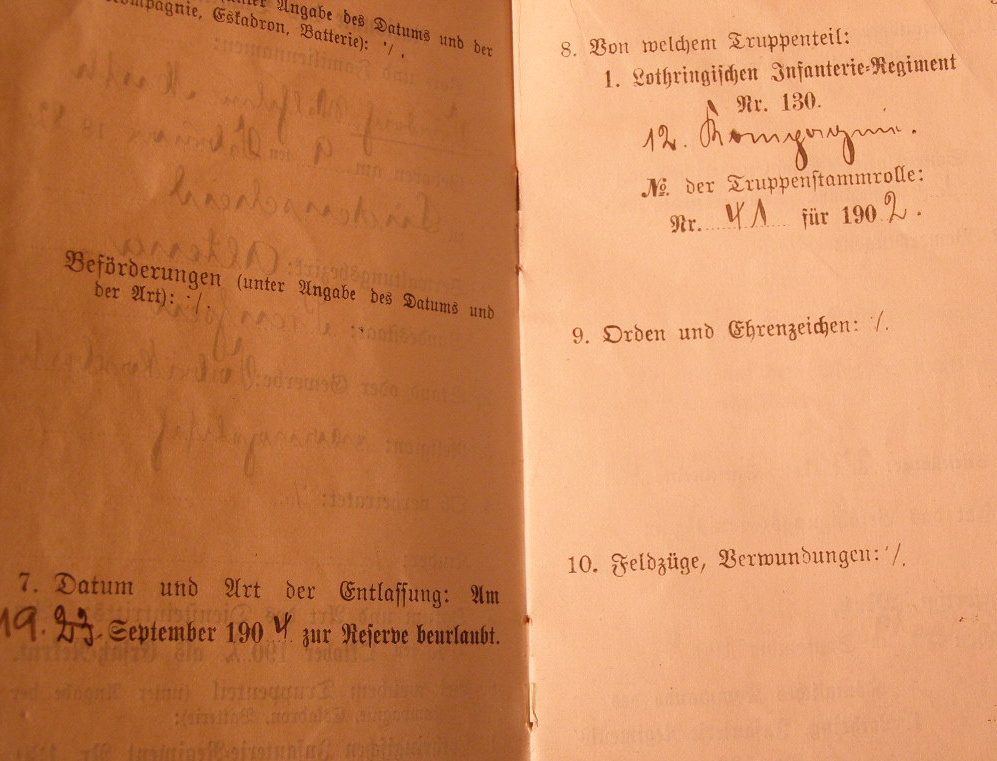 (unter Angabe des Datums und der
Kompagnie, Eskadron, Batterie): ·/.
Beförderungen (unter Angabe des Datums und
der Art): ·/.
7. Datum und Art der Entlassung: Am
19. September 1904 zur Reserve beurlaubt.
8. Von welchem Truppenteil:
1. Lothringischen Infanterie-Regiment
Nr. 130.
12. Kompagnie.
No. der Truppenstammrolle:
Nr. 41 für 1902.
9. Orden und Ehrenzeichen: ·/.
10. Feldzüge, Verwundungen: ·/.